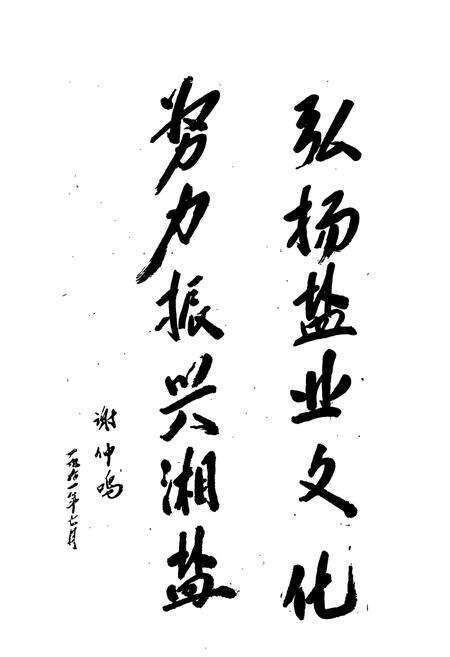 弘扬盐业文化
努力振兴湘盐
谢仲鸣
一九九一年七月